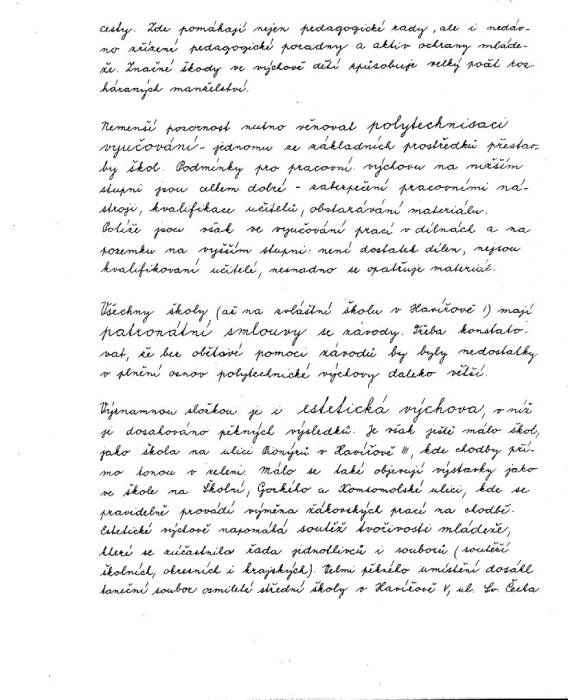 cesty. Zde pomáhají nejen pedagogické rady, ale i nedáv-
no zřízené pedagogické poradny a aktiv ochrany mláde-
že. Značné škody ve výchově dětí způsobuje velký počet roz-
háraných manželství.
Nemenší pozornost nutno věnovat polytechnisaci
vyučování - jednomu ze základních prostředků přestav-
by škol. Podmínky pro pracovní výchovu na nižším
stupni jsou celkem dobré - zabezpečení pracovními ná-
stroji, kvalifikace učitelů, obstarávání materiálu.
Potíže jsou však ve vyučování prací v dílnách a na
pozemku na vyšším stupni: není dostatek dílen, nejsou
kvalifikovaní učitelé, nesnadno se opatřuje materiál.
Všechny školy (až na zvláštní školu v Havířově I) mají
patronátní smlouvy se závody. Třeba konstato-
vat, že bez obětavé pomoci závodů by byly nedostatky
v plnění osnov polytechnické výchovy daleko větší.
Významnou složkou je i estetická výchova, v níž
je dosahováno pěkných výsledků. Je však ještě málo škol,
jako škola na ulici Pionýrů v Havířově III, kde chodby pří-
mo tonou v zeleni. Málo se také objevují výstavky jako
ve škole na Školní, Gorkého a Komsomolské ulici, kde se
pravidelně provádí výměna žákovských prací na chodbě.
Estetické výchově napomáhá soutěž tvořivosti mládeže,
které se zúčastnila řada jednotlivců i souborů (soutěží
školních, okresních i krajských). Velmi pěkného umístění dosáhl
taneční soubor osmileté střední školy v Havířově V, ul. Sv. Čecha